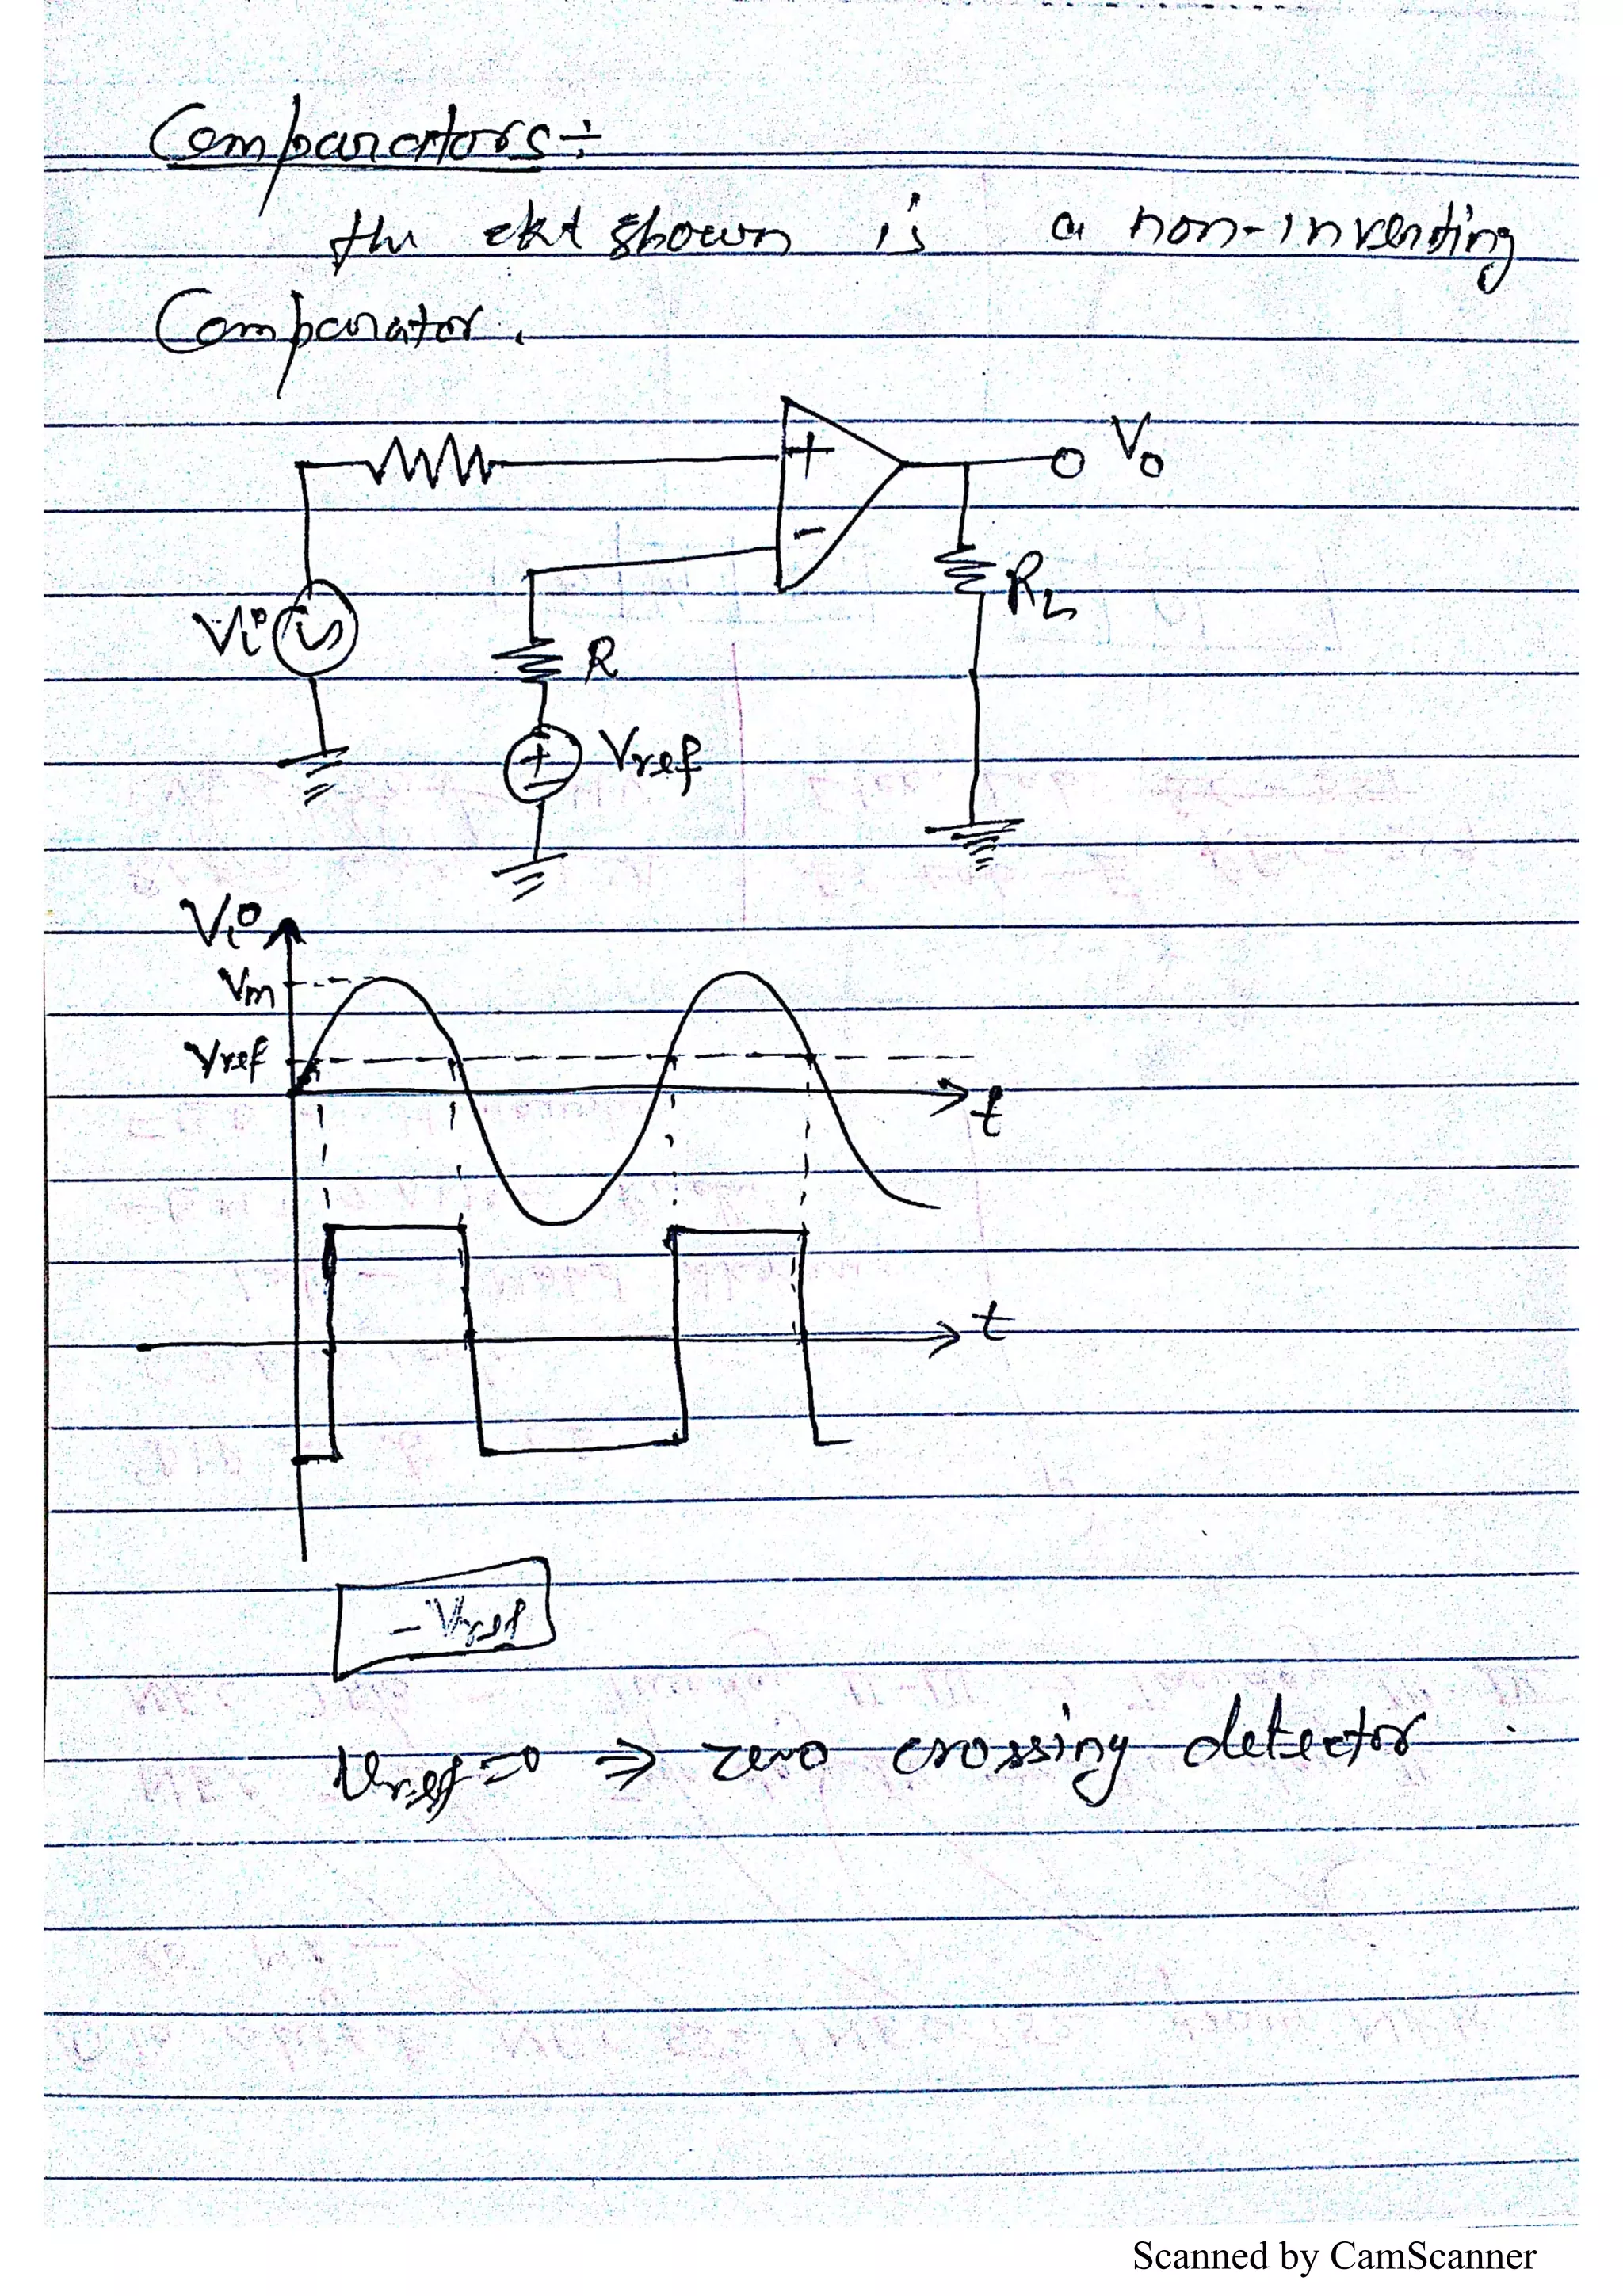 Comparators:-
the ckt shown is a non-inverting
Comparator.
+
-
Vo
RL
Vi
R
+
-
Vref
Vi
Vm
Vref
t
t
- Vref
Vref=0 ⇒ zero crossing detector
Scanned by CamScanner